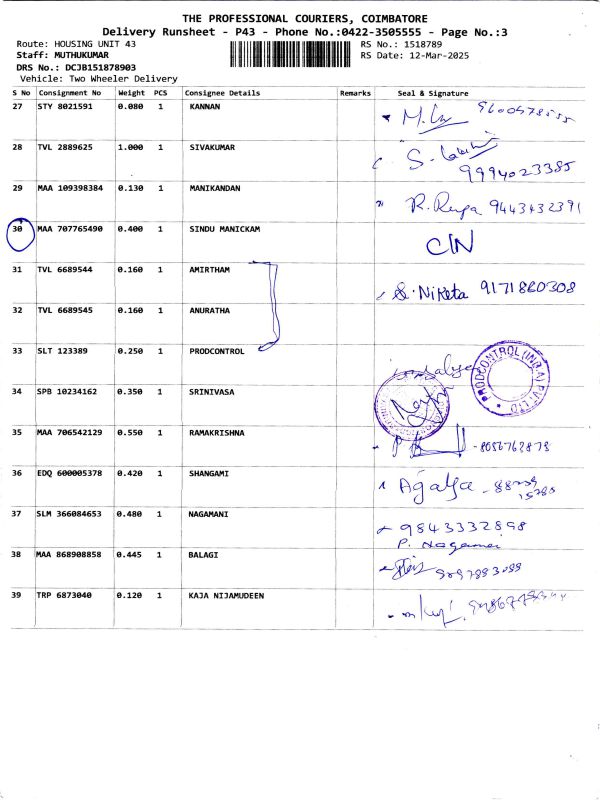 THE PROFESSIONAL COURIERS, COIMBATORE
Delivery Runsheet - P43 - Phone No.:0422-3505555 - Page No.:3
Route: HOUSING UNIT 43 RS No.: 1518789
Staff: MUTHUKUMAR RS Date: 12-Mar-2025
DRS No.: DCJB151878903
Vehicle: Two Wheeler Delivery
S No Consignment No Weight PCS Consignee Details Remarks Seal & Signature
27 STY 8021591 0.080 1 KANNAN
28 TVL 2889625 1.000 1 SIVAKUMAR S. 9994023385
29 MAA 109398384 0.130 1 MANIKANDAN R. Renga 9443432391
30 MAA 707765490 0.400 1 SINDU MANICKAM C/N
31 TVL 6689544 0.160 1 AMIRTHAM S. Niketa 9171880308
32 TVL 6689545 0.160 1 ANURATHA
33 SLT 123389 0.250 1 PRODCONTROL PRODCONTROL (INDIA) PVT LTD
34 SPB 10234162 0.350 1 SRINIVASA
35 MAA 706542129 0.550 1 RAMAKRISHNA - 8056762873
36 EDQ 600005378 0.420 1 SHANGAMI Agalya
37 SLM 366084653 0.480 1 NAGAMANI 9843332898
P. Nagamani
38 MAA 868908858 0.445 1 BALAGI
39 TRP 6873040 0.120 1 KAJA NIJAMUDEEN